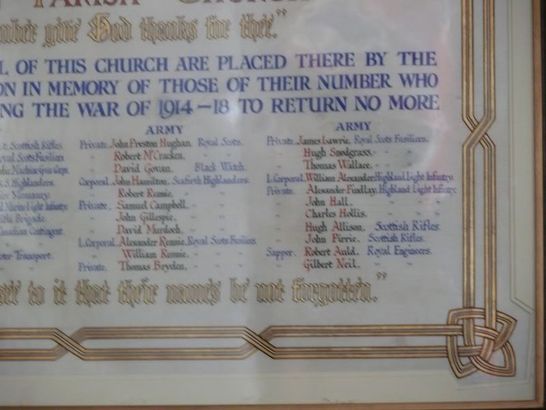 PARISH CHURCH
give God thanks for thit."
L OF THIS CHURCH ARE PLACED THERE BY THE
ON IN MEMORY OF THOSE OF THEIR NUMBER WHO
ING THE WAR OF 1914-18 TO RETURN NO MORE
ARMY ARMY
Scottish Rifles. Private. John Preston Hughan. Royal Scots. Private. James Lawrie. Royal Scots Fusiliers.
Royal Scots Fusiliers " Robert McCracken. " " " Hugh Snodgrass. " "
" David Gowan. Black Watch. " Thomas Wallace. " "
Highlanders. Corporal. John Hamilton. Seaforth Highlanders. L. Corporal. William Alexander. Highland Light Infantry.
" Robert Rennie. " " Private. Alexander Findlay. Highland Light Infantry.
Light Infantry. Private. Samuel Campbell. " " " John Hall. " "
Brigade. " John Gillespie. " " " Charles Hollis. " "
Canadian Contingent. " David Murdoch. " " " Hugh Allison. Scottish Rifles.
L. Corporal. Alexander Rennie. Royal Scots Fusiliers " John Pirrie. Scottish Rifles.
Transport. " William Rennie. " " Sapper. Robert Auld. Royal Engineers.
Private. Thomas Boyden. " " " Gilbert Neil. " "
to it that their names be not forgotten."